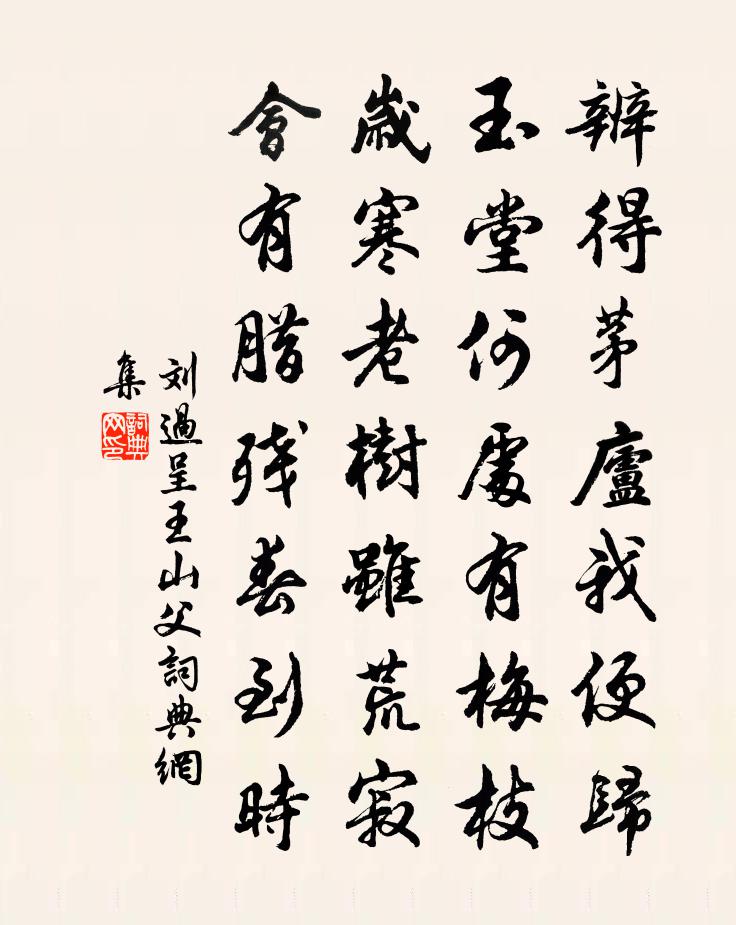 辨得茅廬我便歸
玉堂何處有梅枝
歲寒老樹雖荒寂
會有腊残春到時
刘過呈王山父詞典網
集
詞典
网印